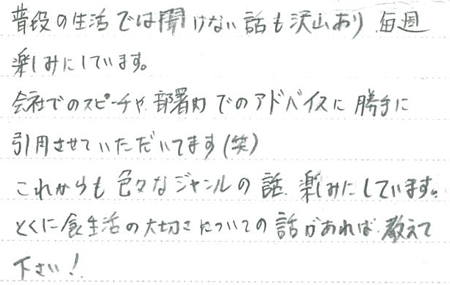 普段の生活では聞けない話も沢山あり 毎週
楽しみにしています。
会社でのスピーチや 部署内でのアドバイスに 勝手に
引用させていただいてます(笑)
これからも 色々なジャンルの話 楽しみにしています。
とくに食生活の大切さについての話があれば 教えて
下さい!